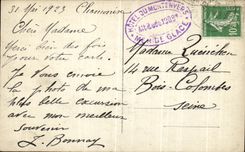 31 Mai 1923 Chamonix
Chère Madame
Merci bien des fois
pour votre carte.
Je vous envoie
la photo de ma
plus belle excursion
avec mon meilleur
souvenir
J. Bonnay
HOTEL DU MONTENVERS
MER DE GLACE
10
Madame
14 rue Raspail
Bois-Colombes
Seine